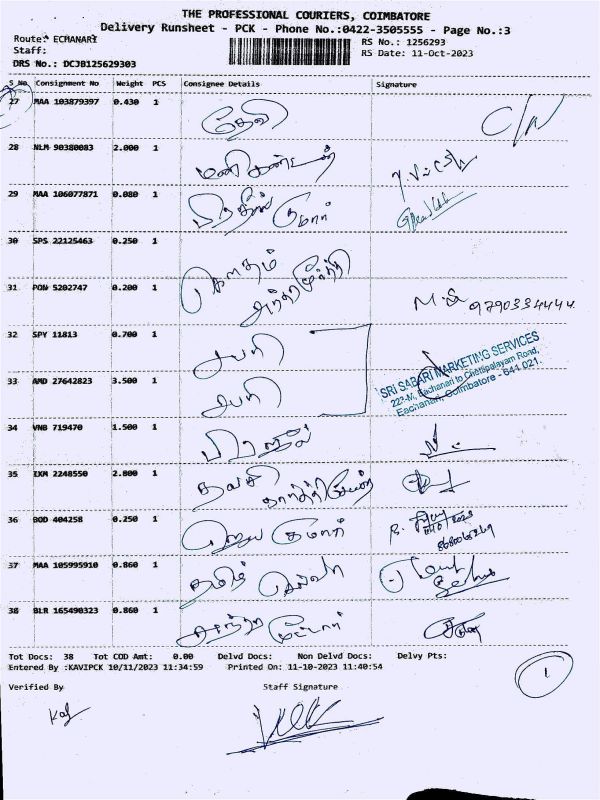 THE PROFESSIONAL COURIERS, COIMBATORE
Delivery Runsheet - PCK - Phone No.:0422-3505555 - Page No.:3
Route: ECHANARI
RS No.: 1256293
Staff:
RS Date: 11-Oct-2023
DRS No.: DCJB125629303
S No. Consignment No Weight PCS Consignee Details Signature
27 MAA 103879397 0.430 1 தேவி
28 NLM 90380083 2.000 1 மணிகண்டன்
29 MAA 106077871 0.080 1 குமார்
30 SPS 22125463 0.250 1 கௌதம்
31 PON 5202747 0.200 1 9790334444
32 SPY 11813 0.700 1 சபரி
33 AMD 27642823 3.500 1 சபரி
SRI SABARI MARKETING SERVICES
Eachanari to Chettipalayam Road,
Eachanari, Coimbatore - 641 021.
34 VNB 719470 1.500 1
35 EKM 2248550 2.800 1
36 BOD 404258 0.250 1 குமார்
37 MAA 105995910 0.860 1 தமிழ் செல்வி
38 BLR 165490323 0.860 1
Tot Docs: 38 Tot COD Amt: 0.00 Delvd Docs: Non Delvd Docs: Delvy Pts:
Entered By :KAVIPCK 10/11/2023 11:34:59 Printed On: 11-10-2023 11:40:54
1
Verified By Staff Signature